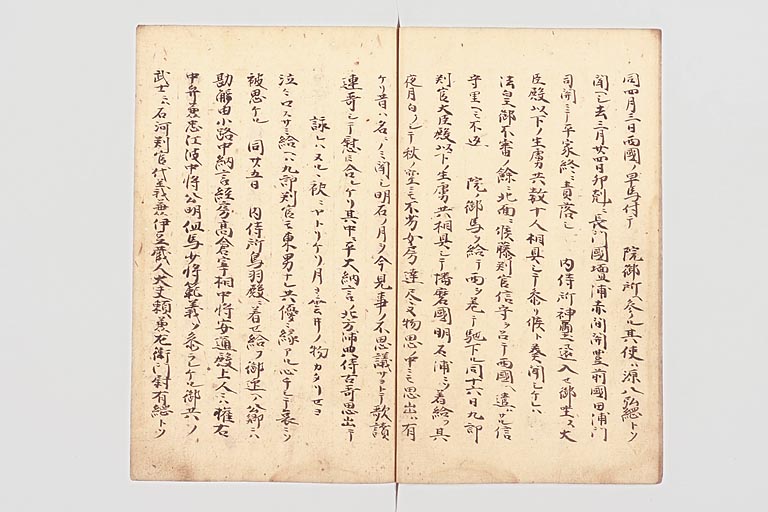 同四月三日西國ノ早馬付テ 院御所ヘ參ル其使ハ源八弘綱トソ
聞ヘシ去三月廿四日卯剋ニ長門國壇浦赤間関豊前國田浦門
司関ニテ平家終ニ責落シ 内侍所神璽還入セ御坐ス大
臣殿以下ノ生虜共数十人相具シテ参リ候ト奏聞シケレハ
法皇御不審ノ餘ニ北面ニ候藤判官信守ヲ召テ西國ヘ遣ハル信
守里ヘモ不返 院ノ御馬ヲ給テ西ヲ差テ馳下ル同十六日九郎
判官大臣殿以下ノ生虜共相具シテ播磨國明石浦ニソ着給フ其
夜月白クシテ秋ノ空ニモ不劣女房達尽ヌ物思ノ中ニモ思出ハ有
ケリ昔ハ名ヲノミ聞シ明石ノ月ヲ今見事ノ不思議サヨトテ歌讀
連哥シテ慰ミ合レケリ其中ニ平大納言ノ北方帥典侍古哥思出テ
詠レハヌルヽ袂ニヤトリケリ月ヨ雲井ノ物カタリセヨ
泣々口スサミ給ヘハ九郎判官モ東男ナレ共優ニ縁アル心チシテ哀ニソ
被思ケル 同廿五日 内侍所鳥羽殿ニ着セ給フ御迎ノ公卿ニハ
勘解由小路中納言経房高倉宰相中将泰通殿上人ニハ権右
中弁兼忠江波中将公明但馬少将範義ソ参ラレケル御共ノ
武士ニハ石河判官代義兼伊豆蔵人大夫頼兼左衛門尉有綱トソ